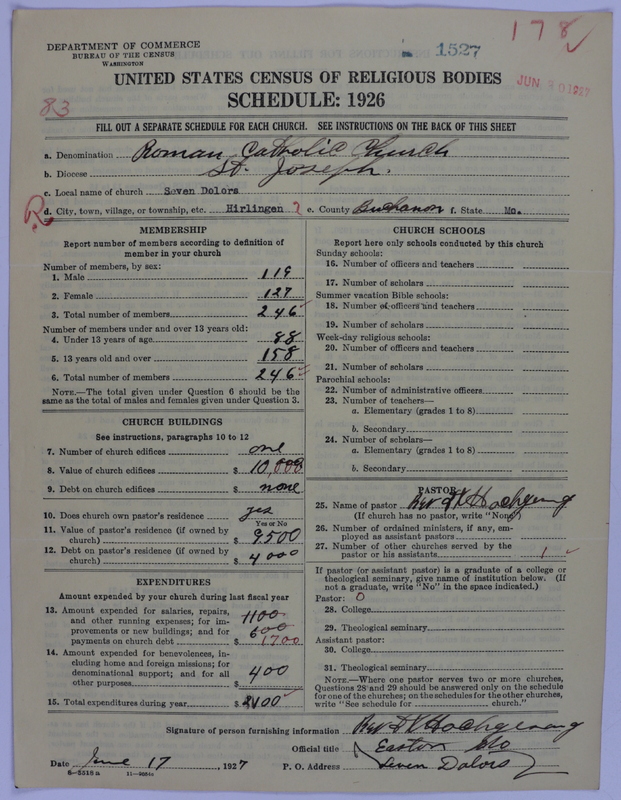 178
DEPARTMENT OF COMMERCE
BUREAU OF THE CENSUS
WASHINGTON
1527
JUN 30 1927
UNITED STATES CENSUS OF RELIGIOUS BODIES
83
SCHEDULE: 1926
FILL OUT A SEPARATE SCHEDULE FOR EACH CHURCH. SEE INSTRUCTIONS ON THE BACK OF THIS SHEET
a. Denomination Roman Catholic Church
b. Diocese St. Joseph.
c. Local name of church Seven Dolors
R d. City, town, village, or township, etc. Hirlingen ? e. County Buchanon f. State Mo.
MEMBERSHIP
Report number of members according to definition of
member in your church
Number of members, by sex:
1. Male 119
2. Female 127
3. Total number of members 246
Number of members under and over 13 years old:
4. Under 13 years of age 88
5. 13 years old and over 158
6. Total number of members 246
NOTE.—The total given under Question 6 should be
the same as the total of males and females given under Question 3.
CHURCH BUILDINGS
See instructions, paragraphs 10 to 12
7. Number of church edifices one
8. Value of church edifices $ 10,000
9. Debt on church edifices $ none
10. Does church own pastor's residence yes
Yes or No
11. Value of pastor's residence (if owned by
church) $ 9500
12. Debt on pastor's residence (if owned by
church) $ 4000
EXPENDITURES
Amount expended by your church during last fiscal year
13. Amount expended for salaries, repairs,
and other running expenses; for im-
provements or new buildings; and for
payments on church debt $ 1100
600
1700
14. Amount expended for benevolences, in-
cluding home and foreign missions; for
denominational support; and for all
other purposes $ 400
15. Total expenditures during year $ 2100
CHURCH SCHOOLS
Report here only schools conducted by this church
Sunday schools:
16. Number of officers and teachers
17. Number of scholars
Summer vacation Bible schools:
18. Number of officers and teachers
19. Number of scholars
Week-day religious schools:
20. Number of officers and teachers
21. Number of scholars
Parochial schools:
22. Number of administrative officers
23. Number of teachers—
a. Elementary (grades 1 to 8)
b. Secondary
24. Number of scholars—
a. Elementary (grades 1 to 8)
b. Secondary
PASTOR
25. Name of pastor Rev
(If church has no pastor, write "None")
26. Number of ordained ministers, if any, em-
ployed as assistant pastors
27. Number of other churches served by the
pastor or his assistants 1
If pastor (or assistant pastor) is a graduate of a college or
theological seminary, give name of institution below. (If
not a graduate, write "No" in the space indicated.)
Pastor: 0
28. College
29. Theological seminary
Assistant pastor:
30. College
31. Theological seminary
NOTE.—Where one pastor serves two or more churches,
Questions 28 and 29 should be answered only on the schedule
for one of the churches; on the schedules for the other churches,
write "See schedule for church."
Signature of person furnishing information Rev
Official title Easton Mo
Date June 17, 1927 P. O. Address Seven Dolors
8—5518a 11—9554a